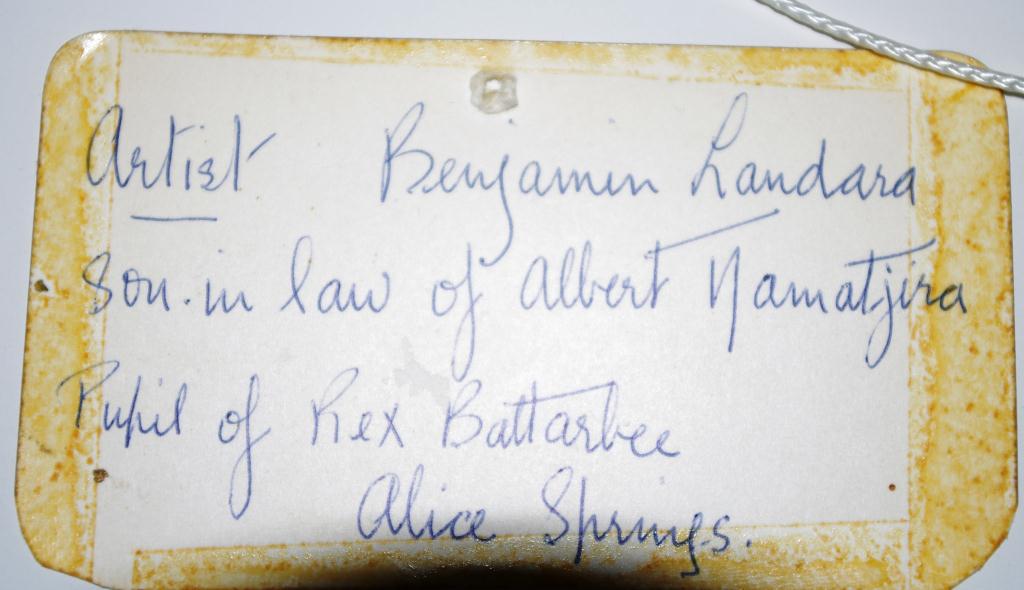 Artist Benjamin Landara
Son. in law of Albert Namatjira
Pupil of Rex Battarbee
Alice Springs.